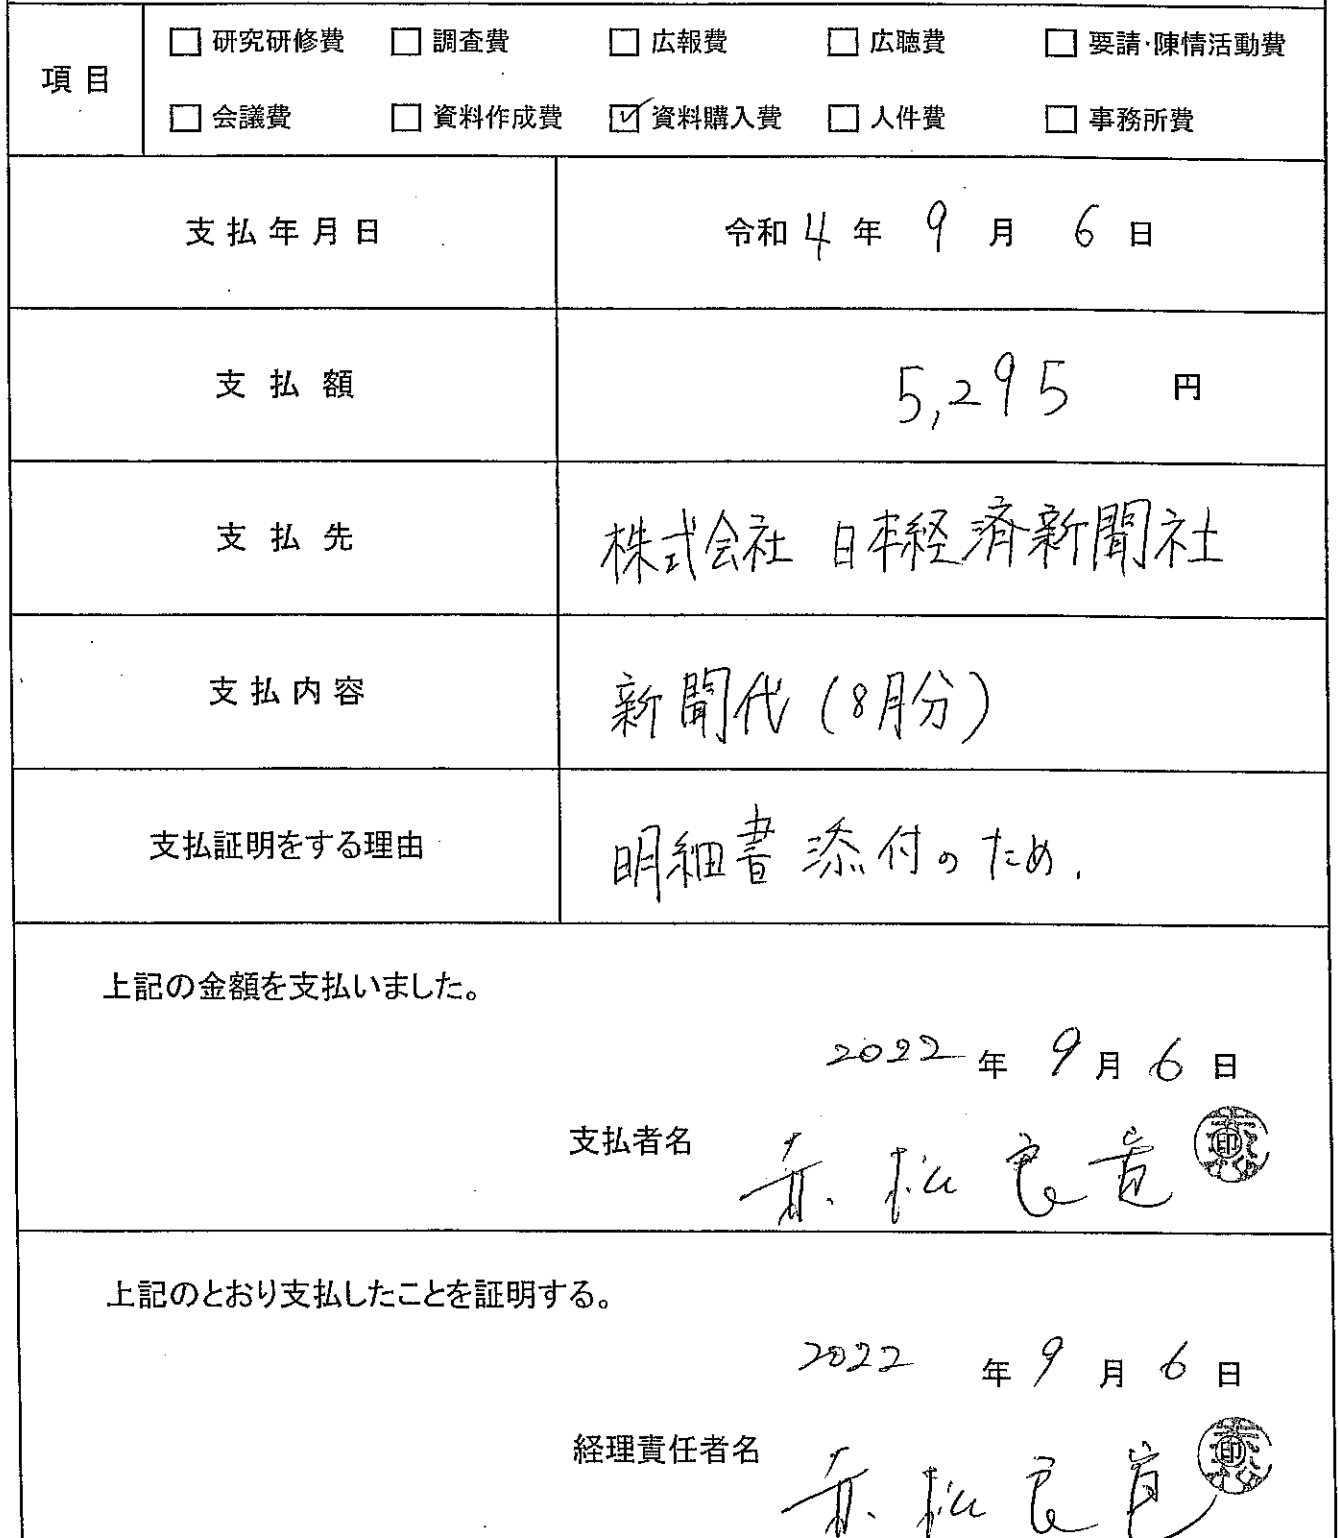 項目
□ 研究研修費 □ 調査費 □ 広報費 □ 広聴費 □ 要請・陳情活動費
□ 会議費 □ 資料作成費 ☑ 資料購入費 □ 人件費 □ 事務所費
支払年月日 令和4年9月6日
支払額 5,295円
支払先 株式会社 日本経済新聞社
支払内容 新聞代(8月分)
支払証明をする理由 明細書添付のため.
上記の金額を支払いました。
2022年9月6日
支払者名 赤松良
上記のとおり支払したことを証明する。
2022年9月6日
経理責任者名 赤松良